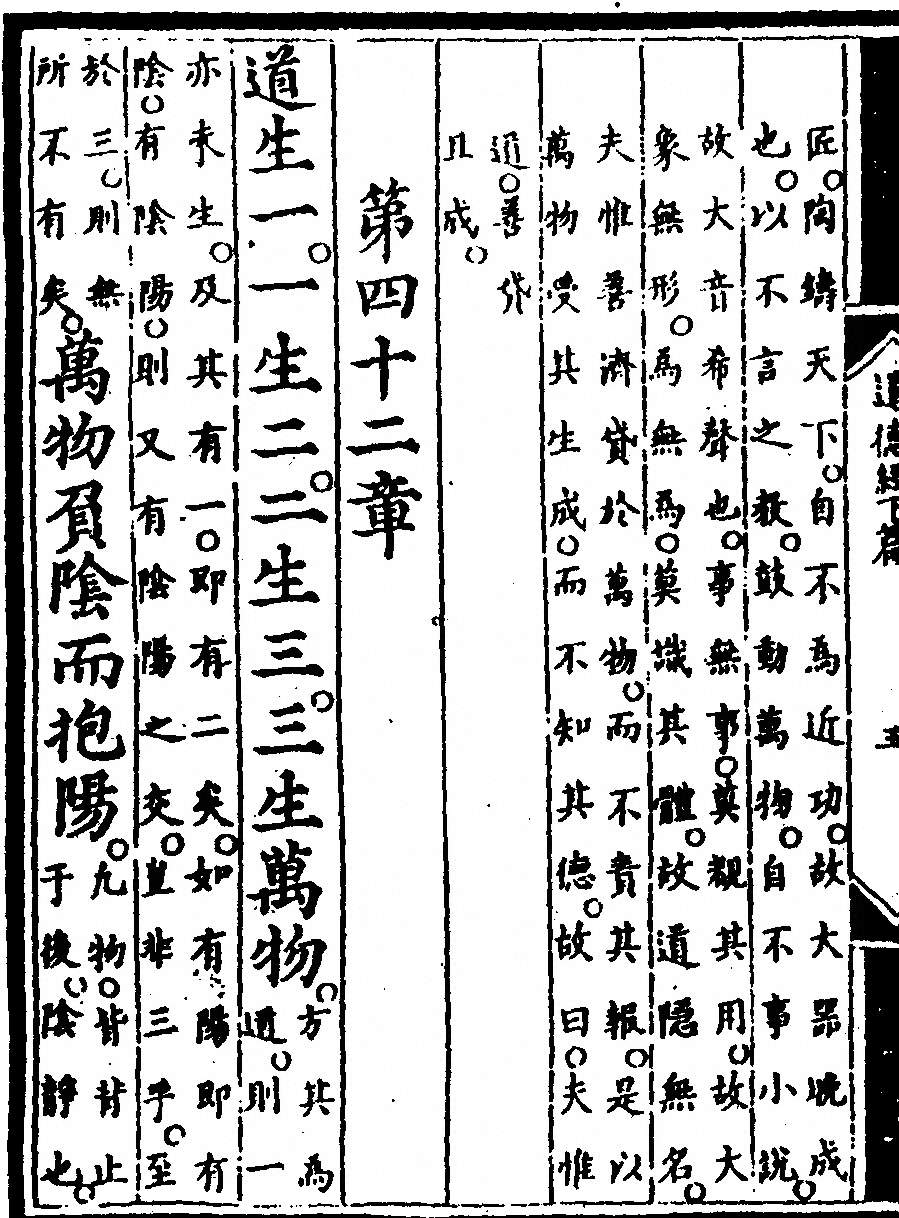 道德經下篇
五
匠。陶鑄天下。自不為近功。故大器晚成
也。以不言之教。鼓動萬物。自不事小說。
故大音希聲也。事無事。莫覩其用。故大
象無形。為無為。莫識其體。故道隱無名。
夫惟善濟貸於萬物。而不責其報。是以
萬物受其生成。而不知其德。故曰。夫惟
道。善貸
且成。
第四十二章
道生一。一生二。二生三。三生萬物。
方其為
道。則一
亦未生。及其有一。即有二矣。如有陽即有
陰。有陰陽。則又有陰陽之交。豈非三乎。至
於三。則無
所不有矣。
萬物負陰而抱陽。
凡物。皆背止
于後。陰靜也。